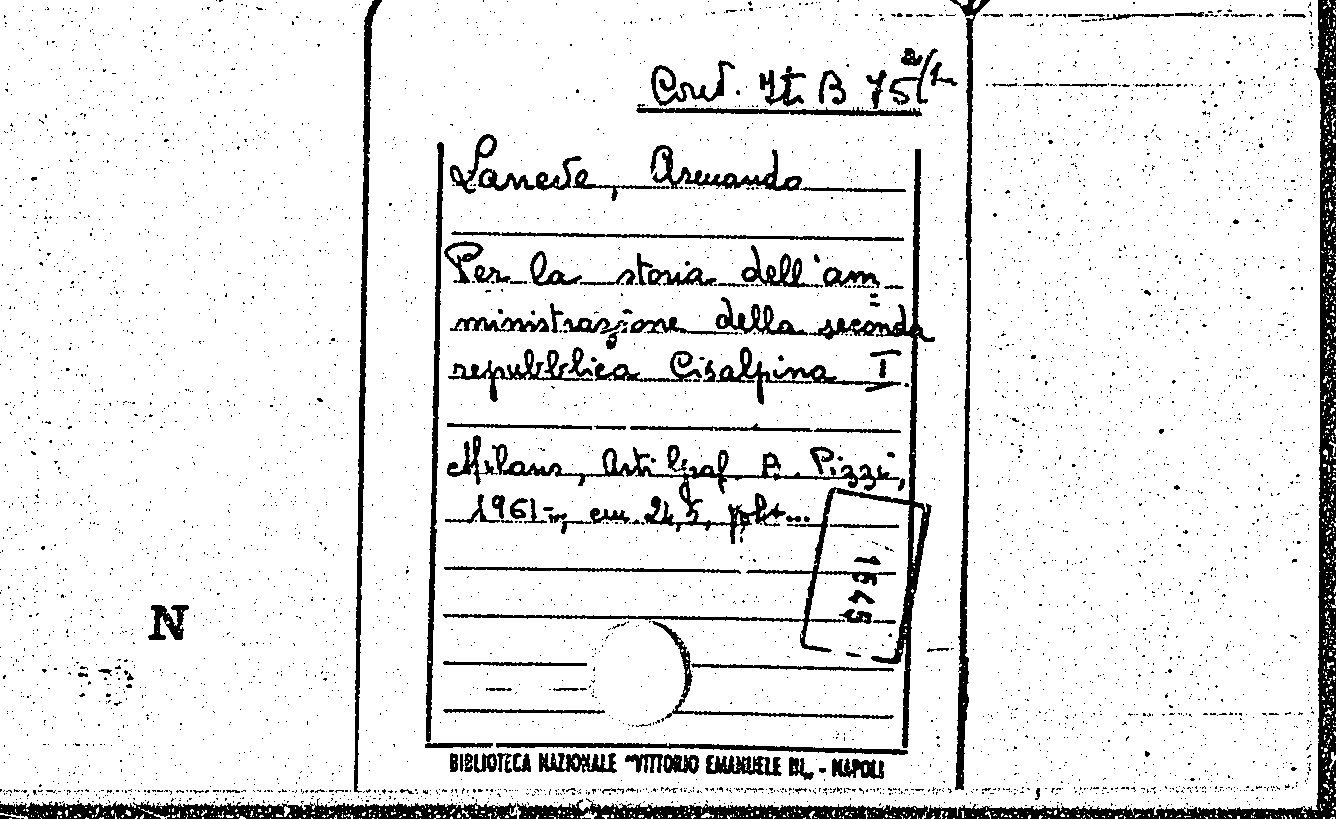 Conf. It. B 75 2/1
Laneve, Armando
Per la storia dell'am=
ministrazione della seconda
repubblica Cisalpina I
Milano, Arti Graf. A. Pizzi,
1961-, cm. 24,5,
1545
N
BIBLIOTECA NAZIONALE "VITTORIO EMANUELE III„ - NAPOLI